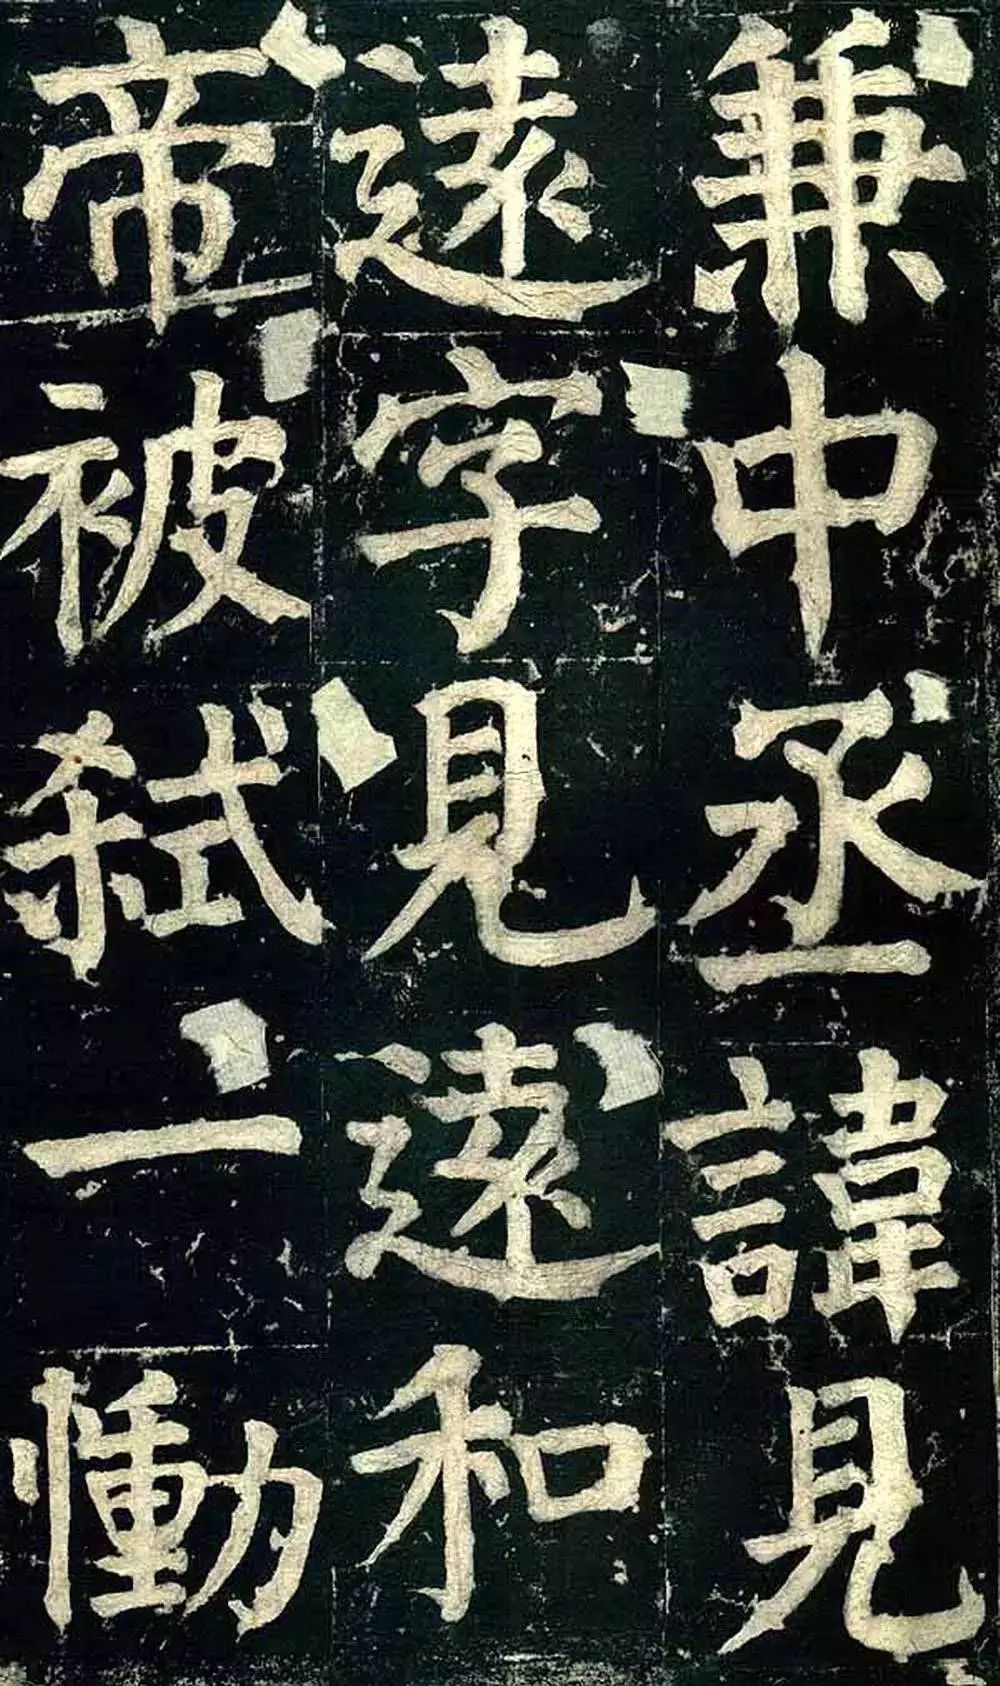 兼中丞諱見
遠字見遠和
帝被弒一慟